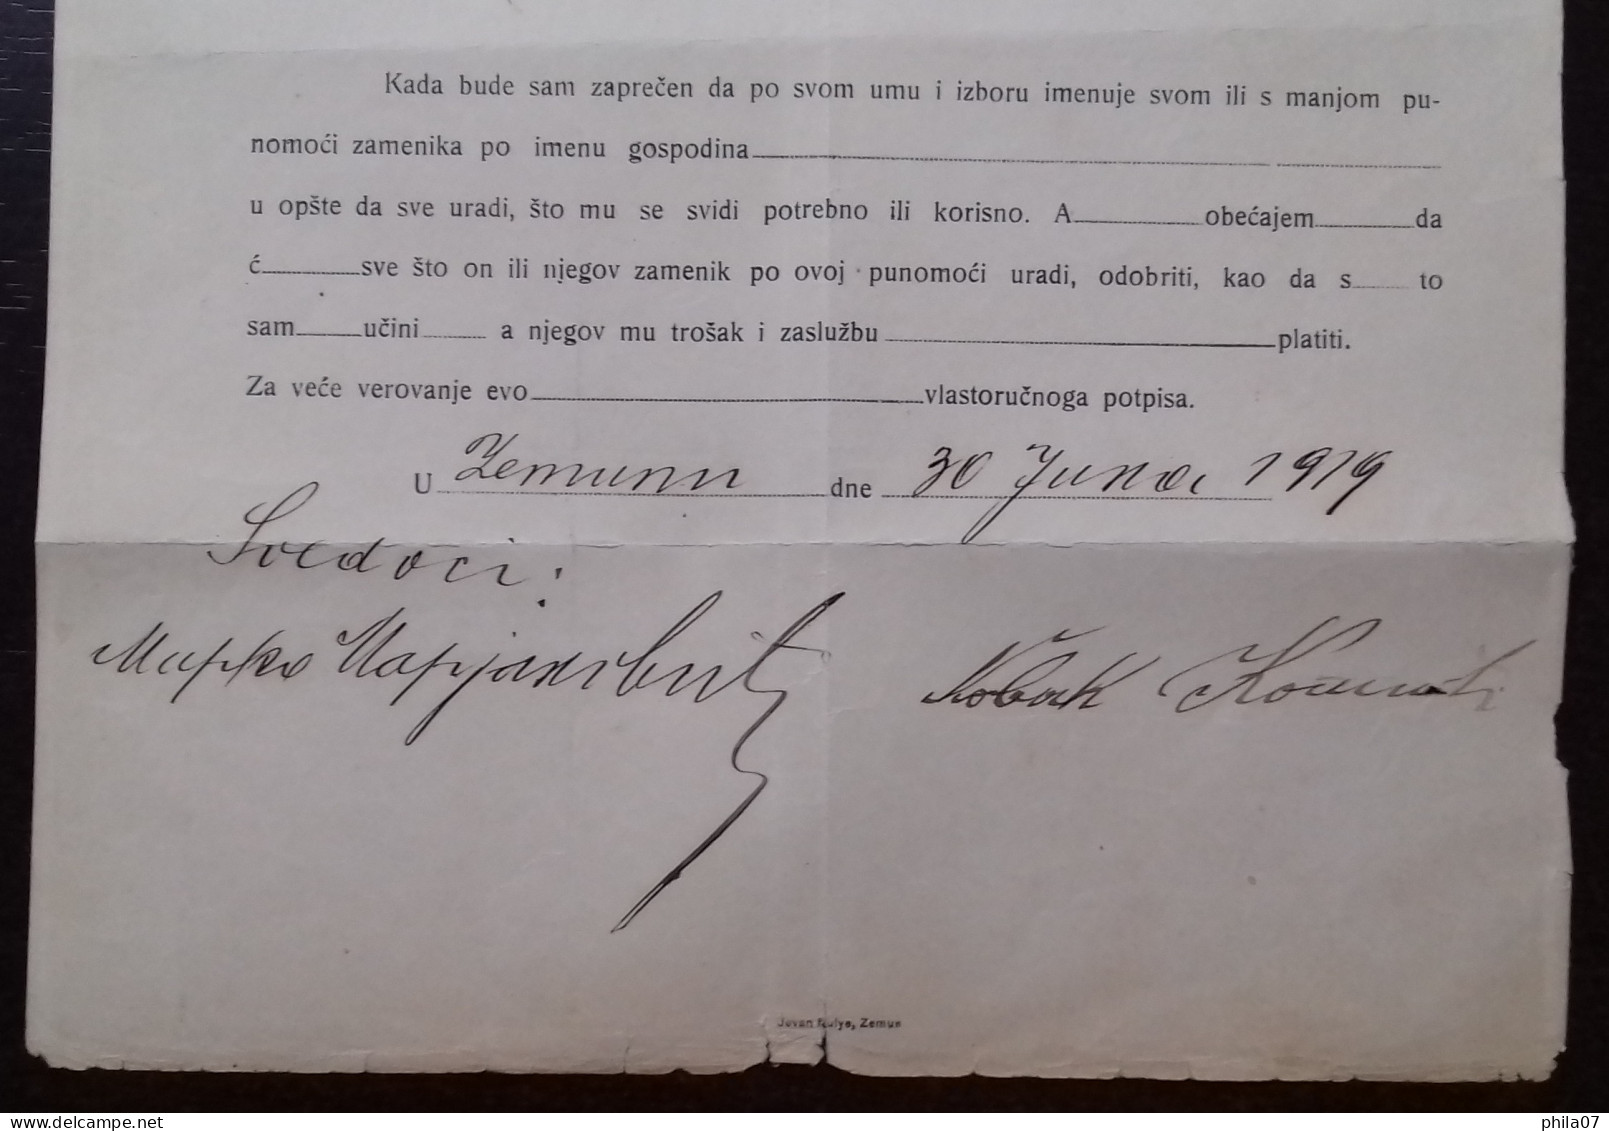 Kada bude sam zaprečen da po svom umu i izboru imenuje svom ili s manjom pu-
nomoći zamenika po imenu gospodina
u opšte da sve uradi, što mu se svidi potrebno ili korisno. A obećajem da
ć sve što on ili njegov zamenik po ovoj punomoći uradi, odobriti, kao da s to
sam učini a njegov mu trošak i zaslužbu platiti.
Za veće verovanje evo vlastoručnoga potpisa.
U Zemunu dne 30 Juna 1919
Svedoci:
Марко Марјановић
Новак
Jovan Zemun
phila07